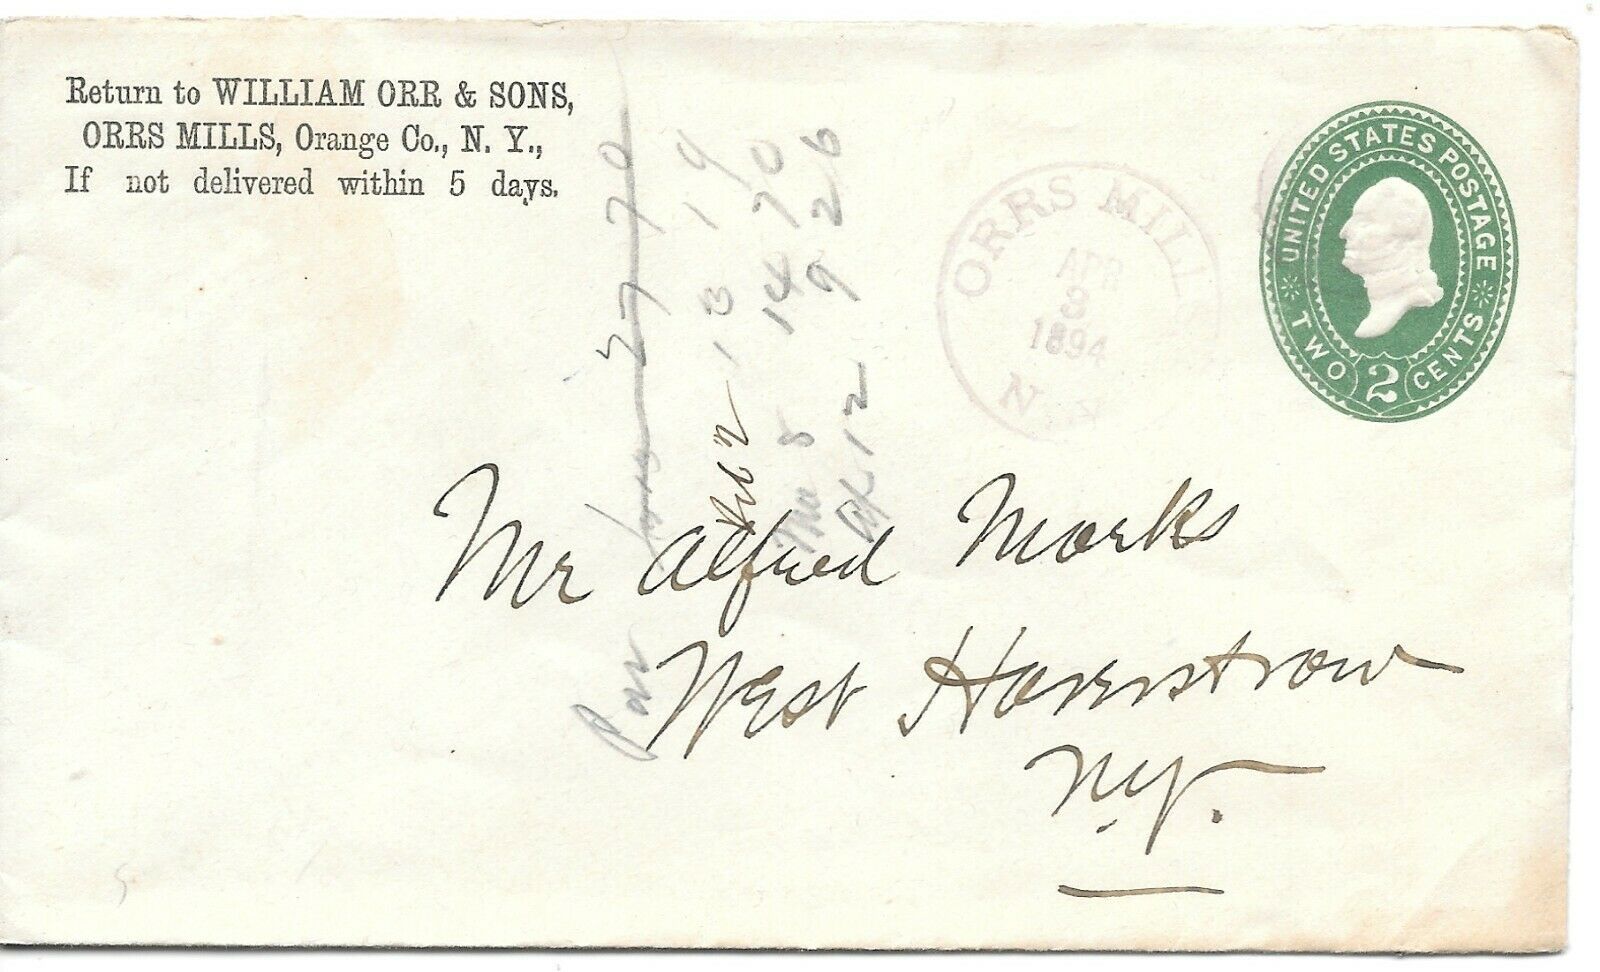 Return to WILLIAM ORR & SONS,
ORRS MILLS, Orange Co., N. Y.,
If not delivered within 5 days.
ORRS MILLS
APR
3
1894
N.Y.
UNITED STATES POSTAGE
TWO 2 CENTS
Mr Alfred Marks
West Haverstraw
N.Y.
27 70
13 19
5 14 70
12 9 26